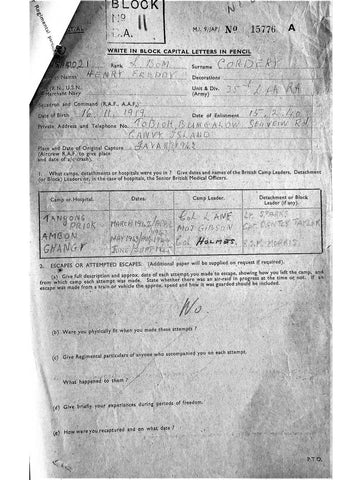 BLOCK
No
11
M.I. 9/JAP/ No 15776 A
WRITE IN BLOCK CAPITAL LETTERS IN PENCIL
Rank L. BDM Surname CORDERY
Names HENRY FREDDY Decorations
(R.N., U.S.N. Merchant Navy
Unit & Div. 35th L AA RA
(Army)
Squadron and Command (R.A.F., A.A.F.)
Date of Birth 16.11.1917 Date of Enlistment 15.2.40
Private Address and Telephone No. BUNGALOW SEAVIEW RD
CANVEY ISLAND
Place and Date of Original Capture JAVA 1942
(Aircrew R.A.F. to give place
and date of a/c crash).
1. What camps, detachments/hospitals were you in ? Give dates and names of the British Camp Leaders, Detachment
(or Block) Leaders or, in case of the hospitals, the Senior British Medical Officers.
Camp or Hospital. Dates. Camp Leader. Detachment or Block Leader (if any).
TANYONG PRIOK MARCH 1942/APRIL Col LANE Lt.
AMBON MAY 1943/ MAJ GIBSON TAYLOR
CHANGY JUNE/SEPT 1945 Col HOLMES R.S.M. MORRIS
2. ESCAPES OR ATTEMPTED ESCAPES. (Additional paper will be supplied on request if required).
(a) Give full description and approx. date of each attempt you made to escape, showing how you left the camp, and
from which camp each attempt was made. State whether there was an air-raid in progress at the time or not. If an
escape was made from a train or vehicle the approx. speed and how it was guarded should be included.
No
(b) Were you physically fit when you made these attempts ?
(c) Give Regimental particulars of anyone who accompanied you on each attempt.
What happened to them ?
(d) Give briefly your experiences during periods of freedom.
(e) How were you recaptured and on what date ?
P.T.O.